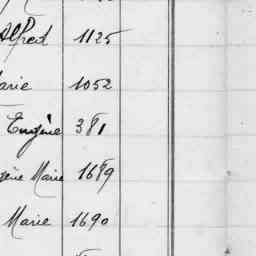 Alfred 1125
arie 1052
Eugène 381
gène Marie 1689
Marie 1690